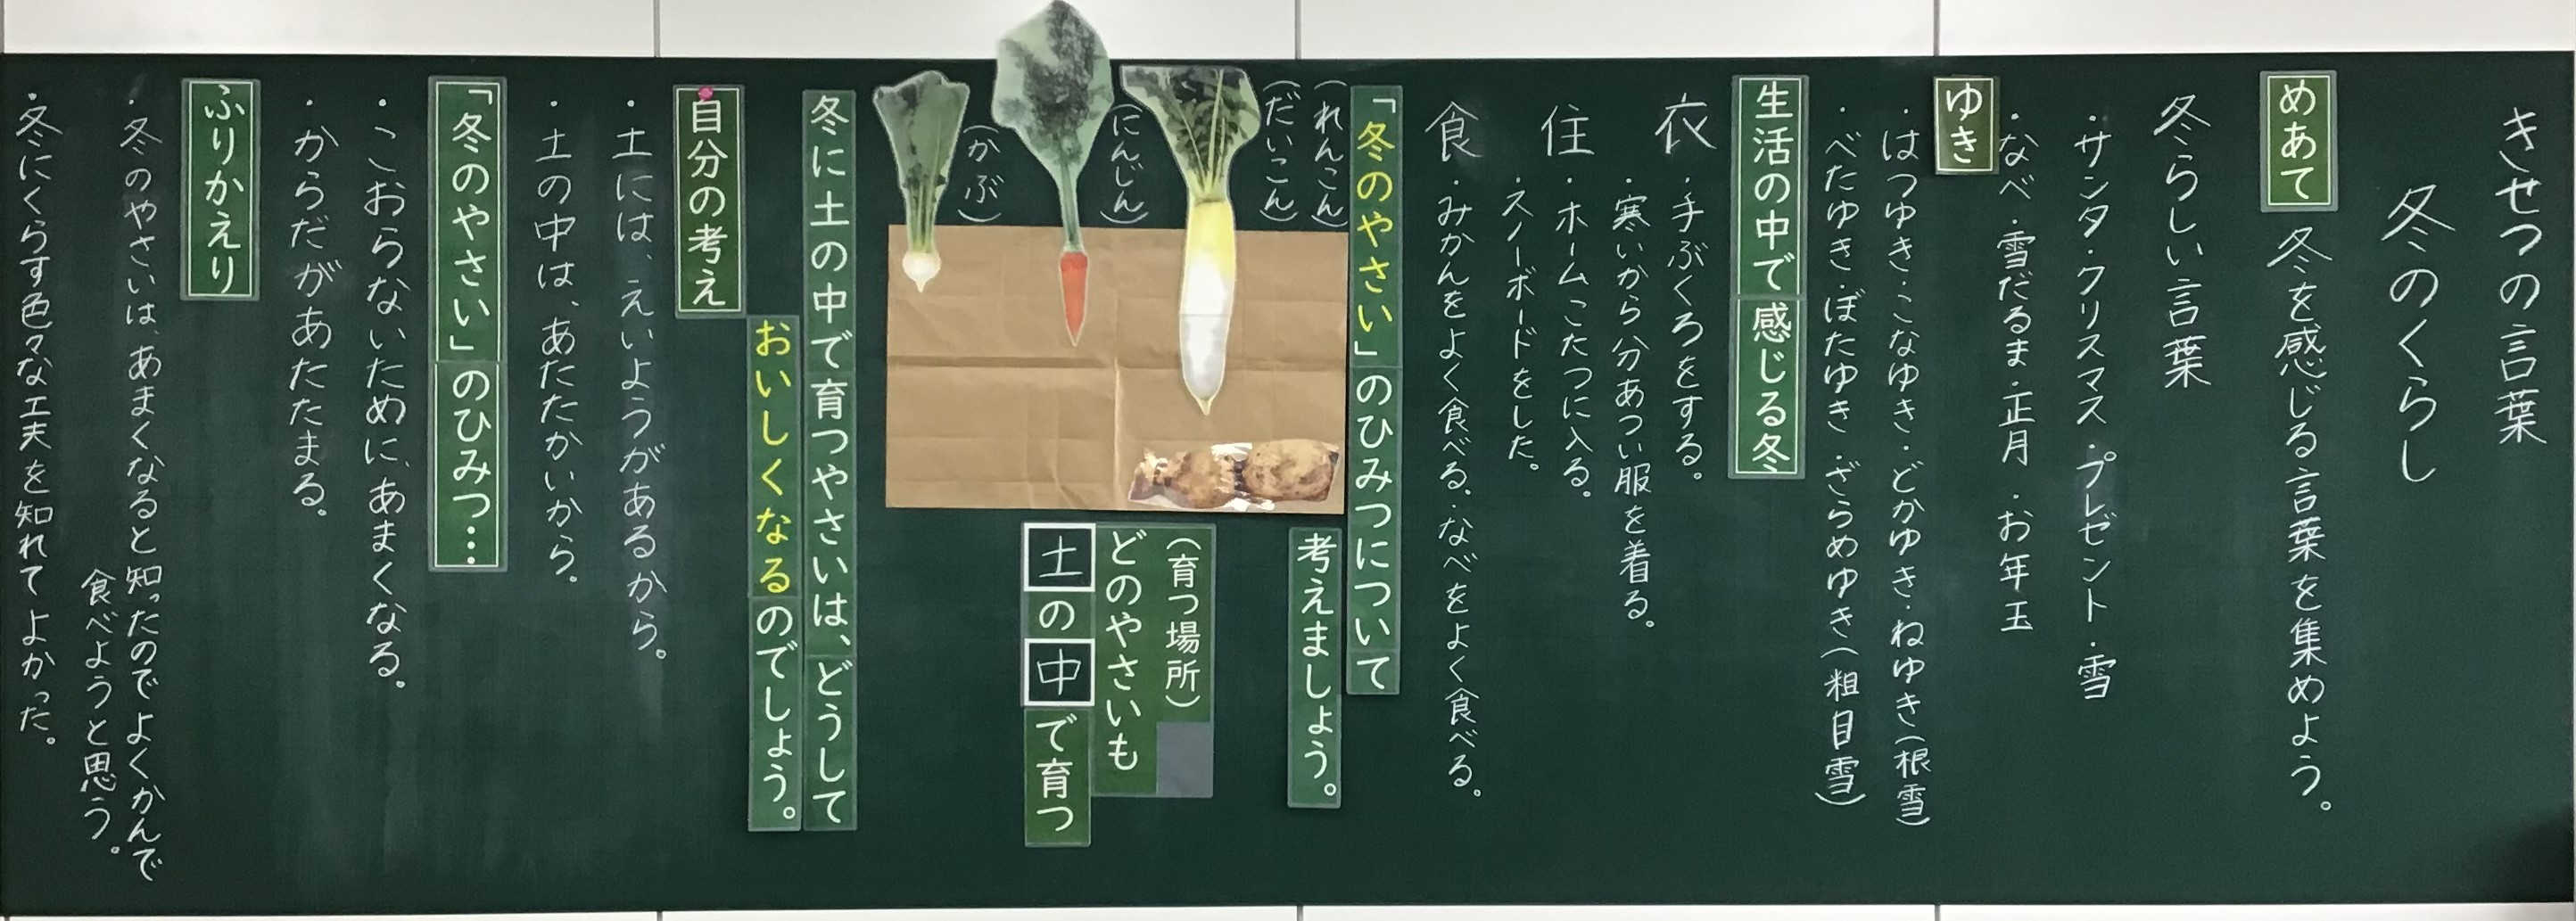 きせつの言葉
冬のくらし
めあて
冬を感じる言葉を集めよう。
冬らしい言葉
・サンタ・クリスマス・プレゼント・雪
・なべ・雪だるま・正月・お年玉
ゆき
・はつゆき・こなゆき・どかゆき・ねゆき(根雪)
・べたゆき・ぼたゆき・ざらめゆき(粗目雪)
生活の中で感じる冬
衣
・手ぶくろをする。
・寒いから分あつい服を着る。
住
・ホームこたつに入る。
・スノーボードをした。
食
・みかんをよく食べる。・なべをよく食べる。
「冬のやさい」のひみつについて
考えましょう。
(れんこん)
(だいこん)
(にんじん)
(かぶ)
(育つ場所)
どのやさいも
土の中で育つ
冬に土の中で育つやさいは、どうして
おいしくなるのでしょう。
自分の考え
・土には、えいようがあるから。
・土の中は、あたたかいから。
「冬のやさい」のひみつ…
・こおらないために、あまくなる。
・からだがあたたまる。
ふりかえり
・冬のやさいは、あまくなると知ったのでよくかんで
食べようと思う。
・冬にくらす色々な工夫を知れてよかった。